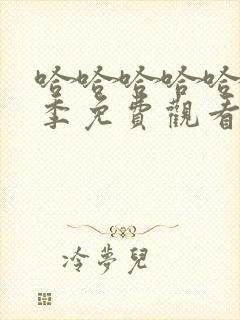 哈哈哈哈哈
季免費觀看
冷夢兒